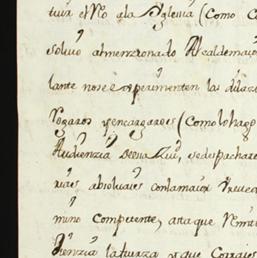 tuir el Rº ala Yglesia (Como C
solvio al mencionado Alcaldemayo
lante nose esperimenten las dilaz
Rogaros yencargaros (Como lo hago
Audienzia deesa Ziu, sedespachare
rias absolucies conlamaior brevea
mino competente, ata que Remit
Henzia lafuerza, o que Corrajes